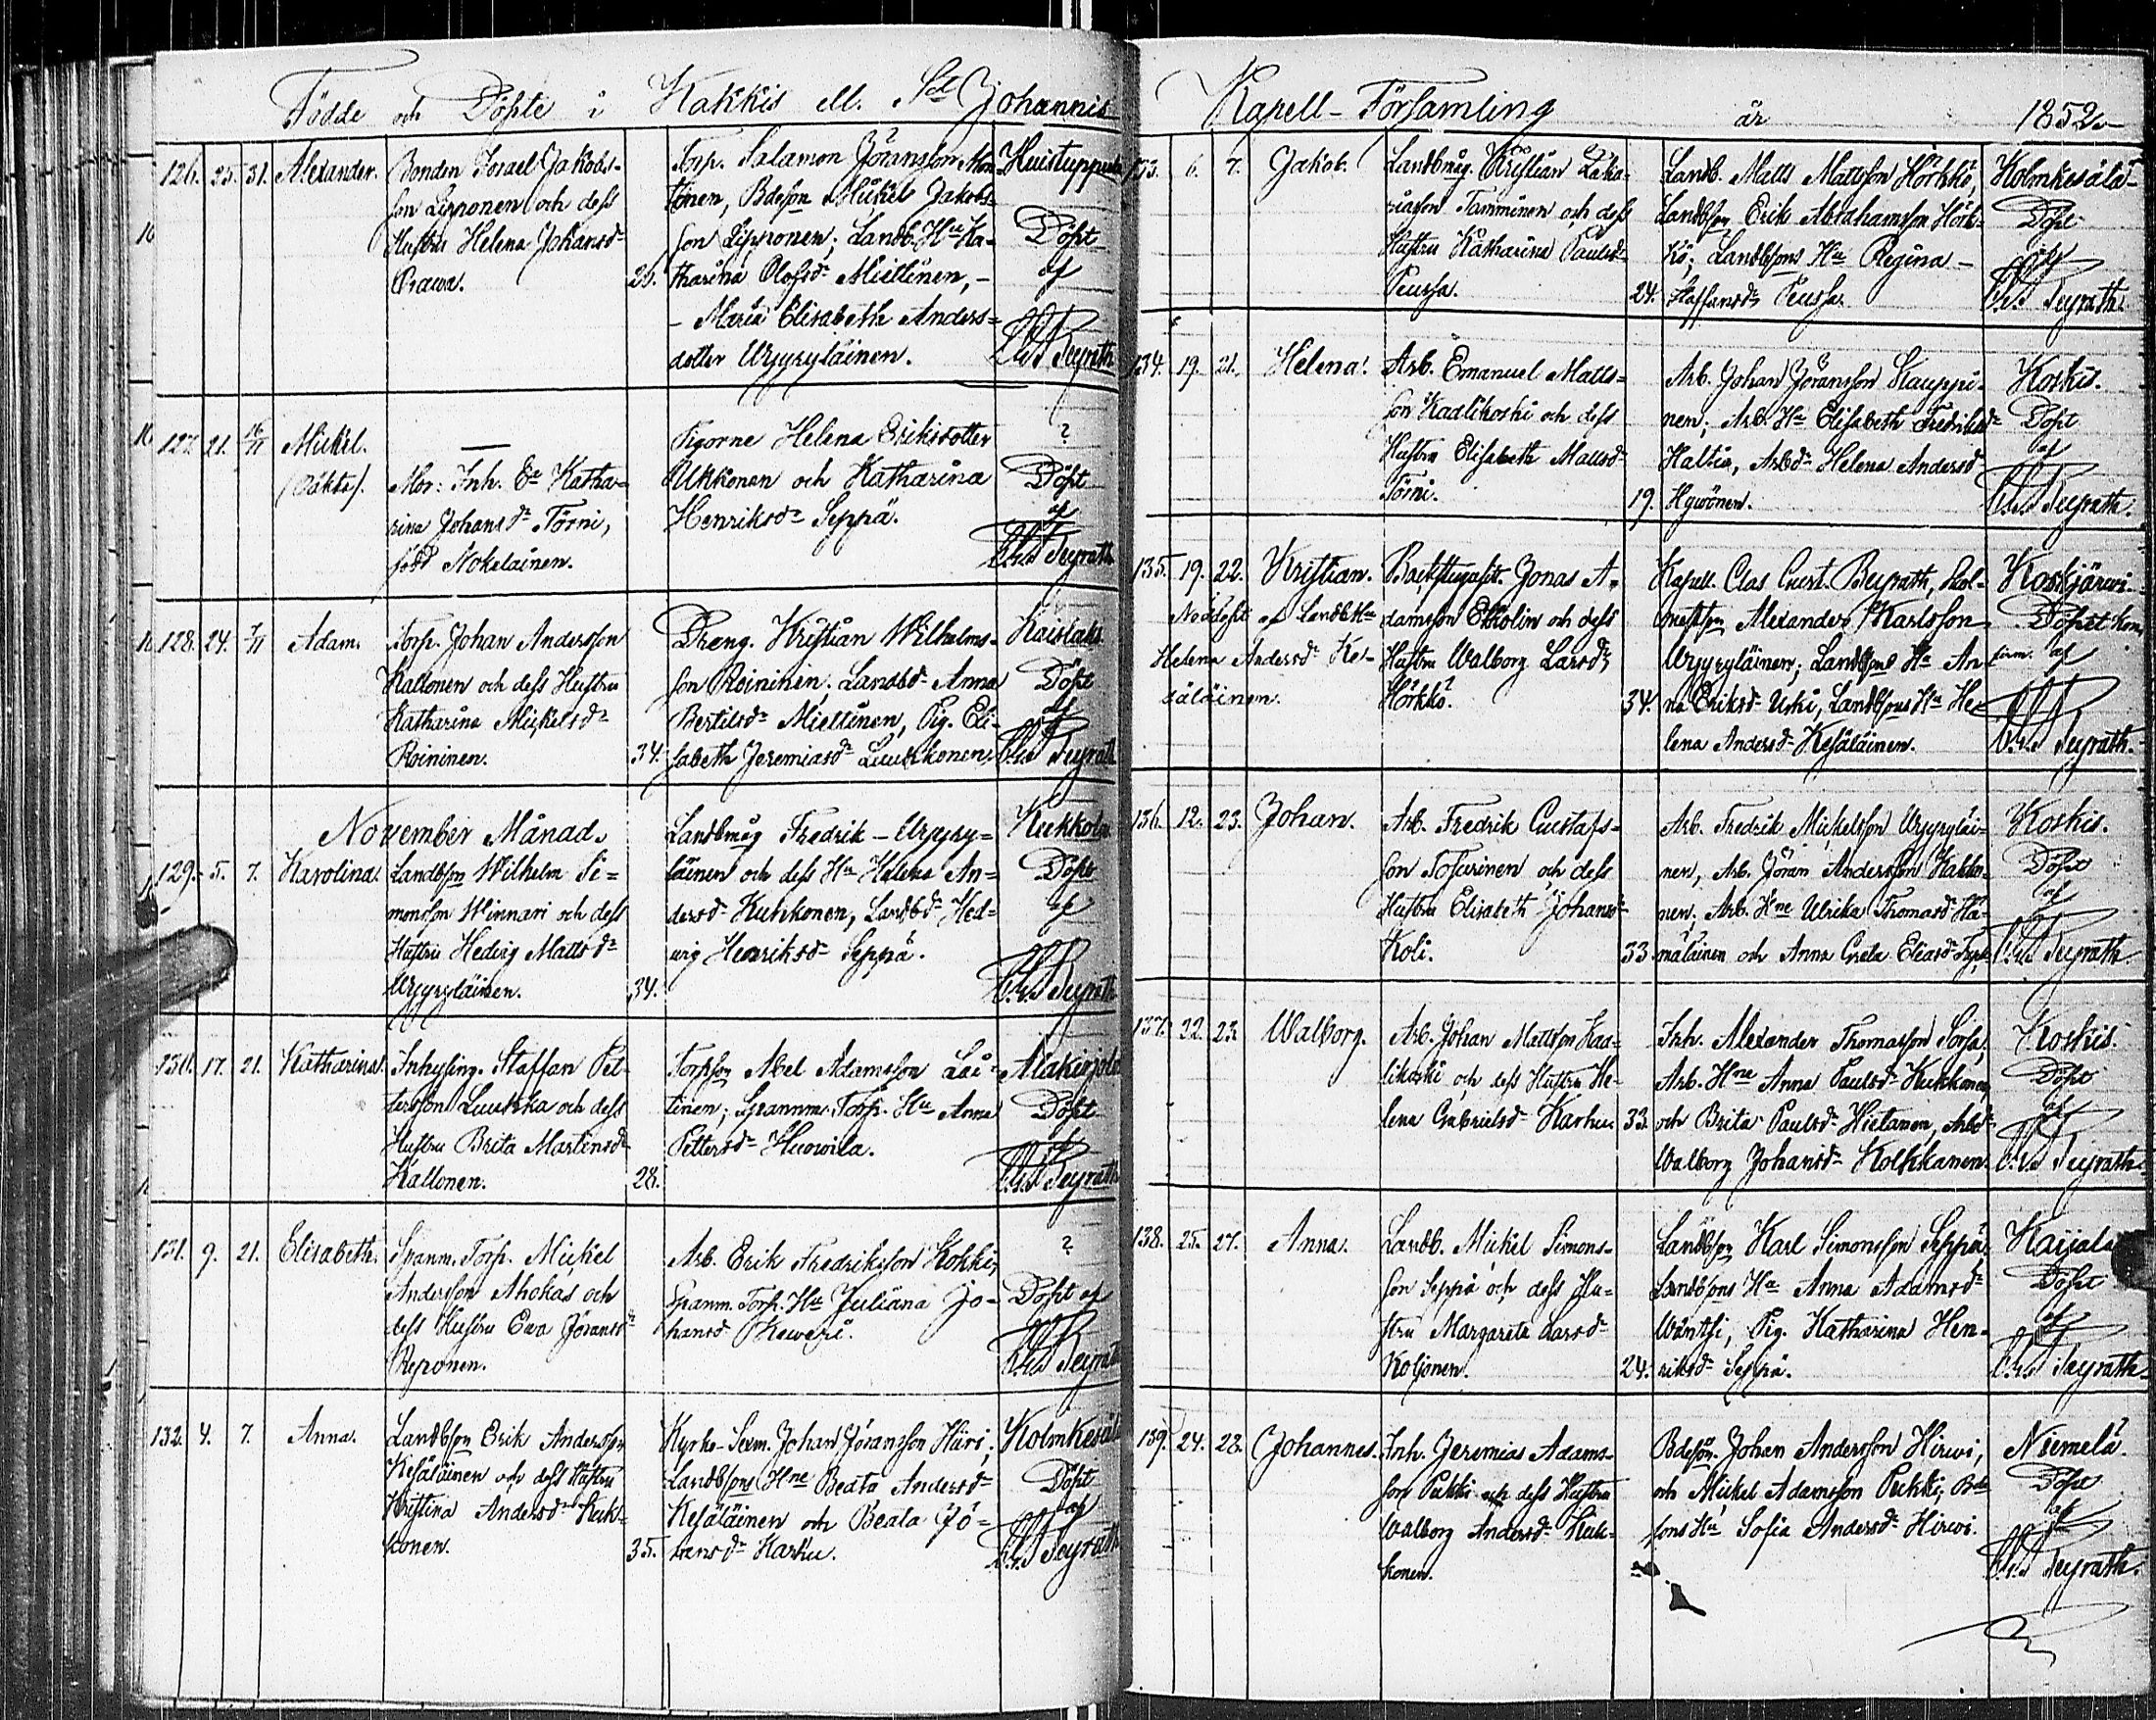 Födde och Döpte i Kakkis ell. S:ct Johannis
126. 25. 31. Alexander. Bonden Israel Jakobs-
son Lipponen och dess
Hustru Helena Johansd:r
Prawa. 26.
Torp. Salamon Jöransson Mon-
tonen, Bdeson Mickel Jakobs-
son Lipponen; Landb. H:u Ka-
tharina Olofsd:r Miettinen, -
- Maria Elisabeth Anders=
dotter Uryyryläinen.
Döpt
af
Peyrath
127. 21. 16/11 Mickel.
(Oäkta).
Mor: Inh. E:a Katha-
rina Johansd:r Törni,
född Nokelainen.
Pigorne Helena Eriksdotter
Ukkonen och Katharina
Henriksd:r Seppä.
?
Döpt
af
Peyrath
128. 24. 7/11 Adam. Torp. Johan Andersson
Kallonen och dess Hustru
Katharina Mickelsd:r
Roininen. 34.
Dreng. Kristian Wilhelms-
son Roininen. Landbd:r Anna
Bertilsd:r Miettinen, Pig. Eli-
sabeth Jeremiasd:r Luukkonen.
Kaislaks
Döpt
af
Peyrath
November Månad.
129. 5. 7. Karolina. Landbson Wilhelm Si=
monsson Winnari och dess
Hustru Hedvig Mattsd:r
Uryyryläinen. 34.
Landbmåg Fredrik - Uryyry=
läinen och dess H:u Helena An=
dersd:r Kukkonen, Landbd:r Hed=
wig Henriksd:r Seppä.
Kukkola
Döpt
af
Peyrath
130. 17. 21. Katharina. Inhysing. Staffan Pet-
tersson Luukka och dess
Hustru Brita Mårtensd:r
Kallonen. 28.
Torpson Abel Adamsson Lai-
tinen; Spannm. Torp. H:u Anna
Pettersd:r Huowila.
Alakirjola
Döpt
af
Peyrath
131. 9. 21. Elisabeth. Spanm. Torp. Mickel
Andersson Ahokas och
dess Hustru Ewa Jöransd:r
Reponen.
Arb. Erik Fredriksson Kokki,
Spanm. Torp. H:u Juliana Jo-
hansd:r Raweri.
?
Döpt af
Peyrath
132. 4. 7. Anna. Landbson Erik Andersson
Kesäläinen och dess Hustru
Kristina Andersd:r Kuk=
konen. 35.
Kyrko-Sexm. Johan Jöransson Häri;
Landbsons H:ne Beata Andersd:r
Kesäläinen och Beata Jö=
ransd:r Karhu.
Kolmkesälä
Döpt
af
Peyrath
Kapell-Församling år 1852.-
133. 6. 7. Jakob. Landbmåg. Kristian Zaka-
riasson Tamminen och dess
Hustru Katharina Paulsd:r
Peussa. 24.
Landb. Matts Mattsson Hörkkö,
Landbson Erik Abrahamsson Hörk-
kö; Landbsons H:u Regina -
Staffansd:r Peussa.
Kolmkesälä-
Döpt
af
Peyrath.
134. 19. 21. Helena. Arb. Emanuel Matts=
son Kaalikoski och dess
Hustru Elisabeth Mattsd:r
Törni. 19.
Arb. Johan Jöransson Kauppi-
nen; Arb. H:u Elisabeth Fredriksd:r
Haltia, Arbd:r Helena Andersd:r
Hywönen.
Koskis.
Döpt
af
Peyrath.
135. 19. 22. Kristian. Backstugusit. Jonas A-
damsson Ekkolin och dess
Hustru Walborg Larsd:r
Hörkkö. 34.
Nöddöpt af Landb. H:u
Helena Andersd:r Ke-
säläinen.
Kapell. Clas Gust. Peyrath, Skol-
mästson Alexander Karlsson
Uryyryläinen; Landbsons H:u An-
na Eriksd:r Uski, Landbsons H:u He-
lena Andersd:r Kesäläinen.
Koskjärwi.
Döpt kon-
firm. af
Peyrath.
136. 12. 23. Johan. Arb. Fredrik Gustafs-
son Tosurinen och dess
Hustru Elisabeth Johansd:r
Koli. 33.
Arb. Fredrik Mickelsson Uryyryläi-
nen, Arb. Jöran Andersson Kakko-
nen. Arb. H:ne Ulrika Thomasd:r Hä-
mäläinen och Anna Greta Eliasd:r
Koskis.
Döpt
af
Peyrath.
137. 22. 23. Walborg. Arb. Johan Mattsson Kaa-
likoski och dess Hustru He-
lena Gabrielsd:r Karhu. 33.
Inh. Alexander Thomasson Sorsa,
Arb. H:ne Anna Paulsd:r Kukkonen
och Brita Paulsd:r Hietanen, Arbd:r
Walborg Johansd:r Kolkkanen.
Koskis.
Döpt
af
Peyrath.
138. 25. 27. Anna. Landb. Mickel Simons-
son Seppä och dess Hu-
stru Margareta Larsd:r
Koljonen. 24.
Landbson Karl Simonsson Seppä
Landbsons H:u Anna Adamsd:r
Wäntsi, Pig. Katharina Hen-
riksd:r Seppä.
Kaijala
Döpt
af
Peyrath.
139. 24. 28. Johannes. Inh. Jeremias Adams-
son Pukki och dess Hustru
Walborg Andersd:r Kuk-
konen.
Bdeson. Johan Andersson Hirwi,
och Mickel Adamsson Pukki; Bde
sons H:u Sofia Andersd:r Hirwi.
Niemelä.
Döpt
af
Peyrath.